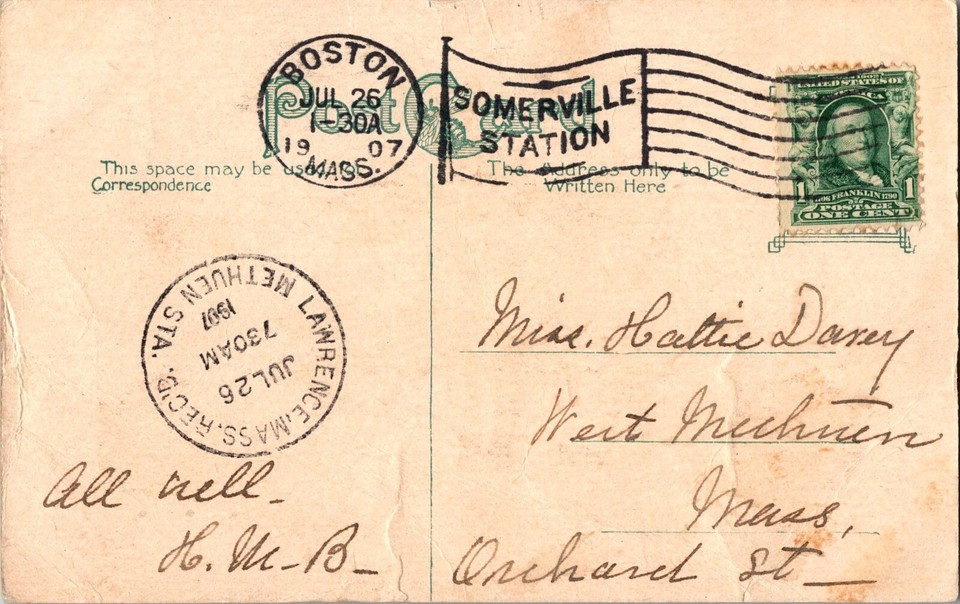 Post Card
BOSTON
JUL 26
1-30A
19 07
MASS.
SOMERVILLE
STATION
This space may be used for
Correspondence
The Address only to be
Written Here
SERIES 1902
UNITED STATES OF
AMERICA
1 1
1706 FRANKLIN 1790
POSTAGE
ONE CENT
LAWRENCE, MASS. REC'D.
METHUEN STA.
JUL 26
730AM
1907
Miss. Hattie Davey
West Methuen
Mass,
Orchard St—
All well—
H. M. B—